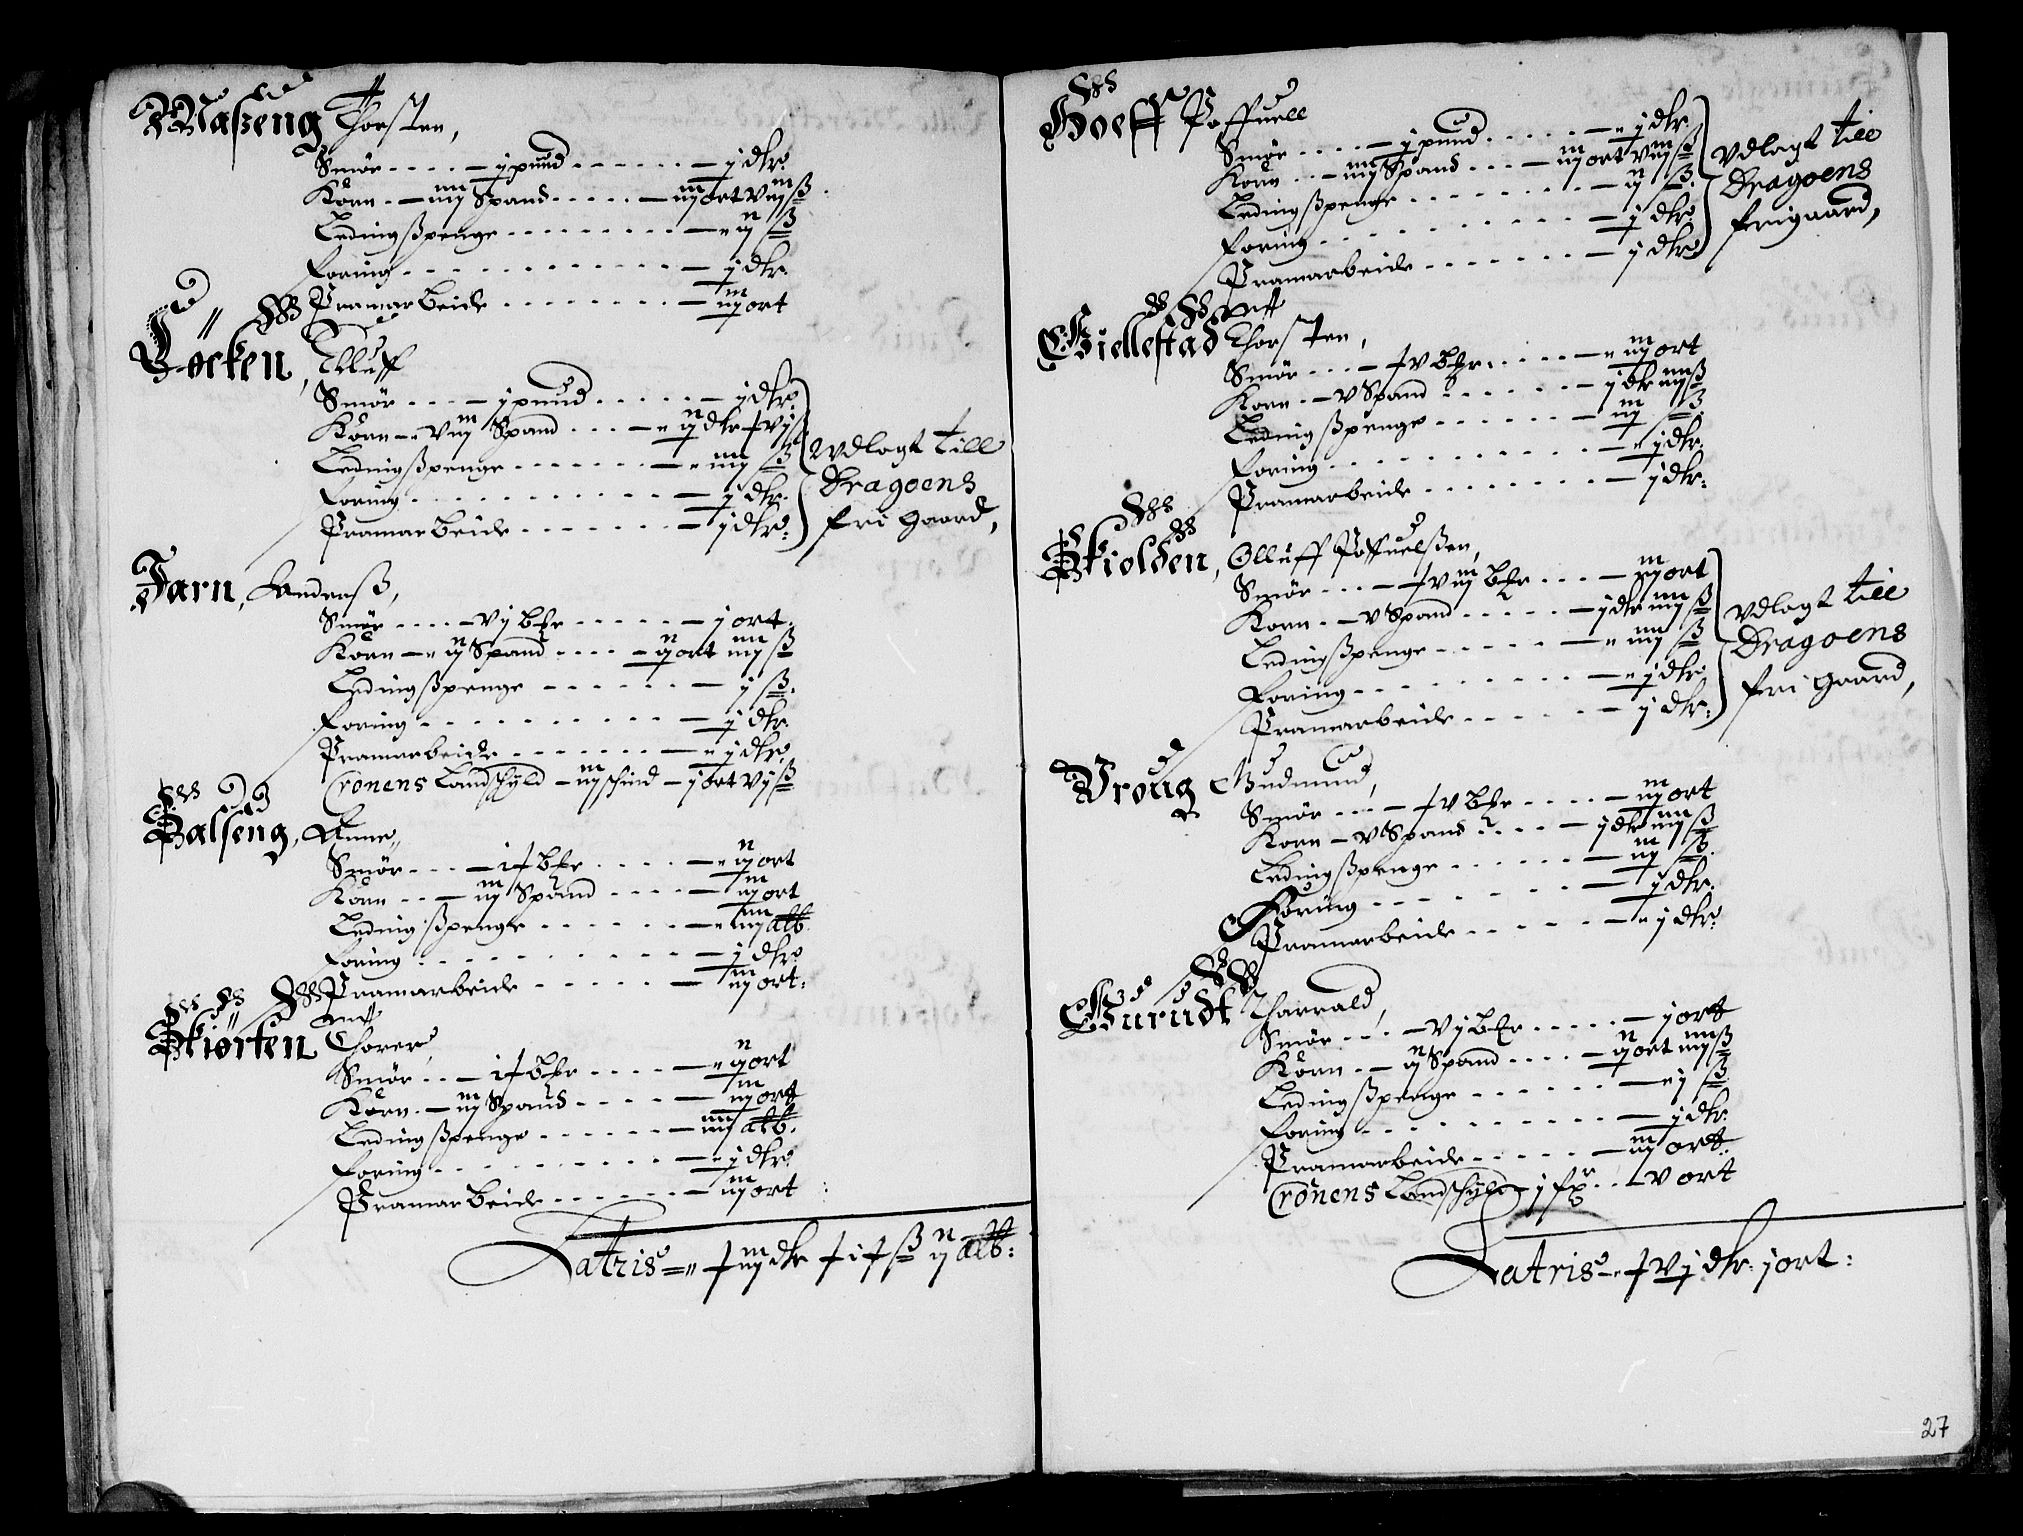 Maßeng Thorsten,
Smör - - - - j pund - - - - - - j dlr.
Korn - - iiij Spand - - - - - iij ort viij ß
Ledingßpenge - - - - - - - ij ß
Foring - - - - - - - - - - j dlr.
Pramarbeide - - - - - - - - iij ort
Löcken, Elluff
Smör - - - - j pund - - - - - - j dlr.
Korn - viij Spand - - - - ij dlr xvj ß
Ledingßpenge - - - - - - - iiij ß
Foring - - - - - - - - - - j dlr.
Pramarbeide - - - - - - - - j dlr.
Wdlagt till
Dragoens
fri Gaard,
Jarn, Anderß,
Smör - - - - vj bpr - - - - - - j ort.
Korn - - ij Spand - - - - ij ort iiij ß
Ledingßpenge - - - - - - - j ß.
Foring - - - - - - - - - - j dlr.
Pramarbeide - - - - - - - - j dlr.
Cronens Landschyld - iij schind - j ort vj ß
Balseng, Anne,
Smör - - - - ix bpr - - - - - ij ort
Korn - - - iij Spand - - - - iij ort
Ledingßpenge - - - - - - - iiij alb.
Foring - - - - - - - - - - j dlr.
Pramarbeide - - - - - - iij ort.
Skiörten Thorer,
Smör - - - ix bpr - - - - - ij ort
Korn - - iij Spand - - - - - iij ort
Ledingßpenge - - - - - - - iiij alb.
Foring - - - - - - - - - - j dlr.
Pramarbeide - - - - - - - iij ort
Latris - xiij dlr xix ß ij alb:
Hoeff Poffuell
Smör - - - - j pund - - - - - - j dlr.
Korn - - iiij Spand - - - iij ort viij ß
Ledingßpenge - - - - - - - ij ß.
Foring - - - - - - - - - - j dlr.
Pramarbeide - - - - - - - j dlr.
Vdlagt till
Dragoens
frigaard,
Gielleftad Thorsten,
Smör - - - xv bpr - - - - - iij ort
Korn - - v Spand - - - - - - j dlr iiij ß
Ledingßpenge - - - - - - - iij ß.
Foring - - - - - - - - - - j dlr.
Pramarbeide - - - - - - - - j dlr.
Skiolden, Olluff Poffuelßen,
Smör - - - xviij bpr - - - - iij ort
Korn - - v Spand - - - - - - j dlr iiij ß
Ledingßpenge - - - - - - - iiij ß
Foring - - - - - - - - - - j dlr.
Pramarbeide - - - - - - - j dlr.
Vdlagt till
Dragoens
fri Gaard,
Vroug Gudmund,
Smör - - - - xv bpr - - - - iij ort
Korn - v Spand - - - - - j dlr iiij ß
Ledingßpenge - - - - - - - iij ß.
Foring - - - - - - - - - j dlr.
Pramarbeide - - - - - - - j dlr.
Gurudt Tharrald,
Smör - - - - vj bpr - - - - - j ort
Korn - - ij Spand - - - - ij ort iiij ß
Ledingßpenge - - - - - - - j ß
Foring - - - - - - - - - - j dlr.
Pramarbeide - - - - - - iij ort.
Cronens Landschyld - j - - v ort
Latris - xvj dlr. j ort:
27